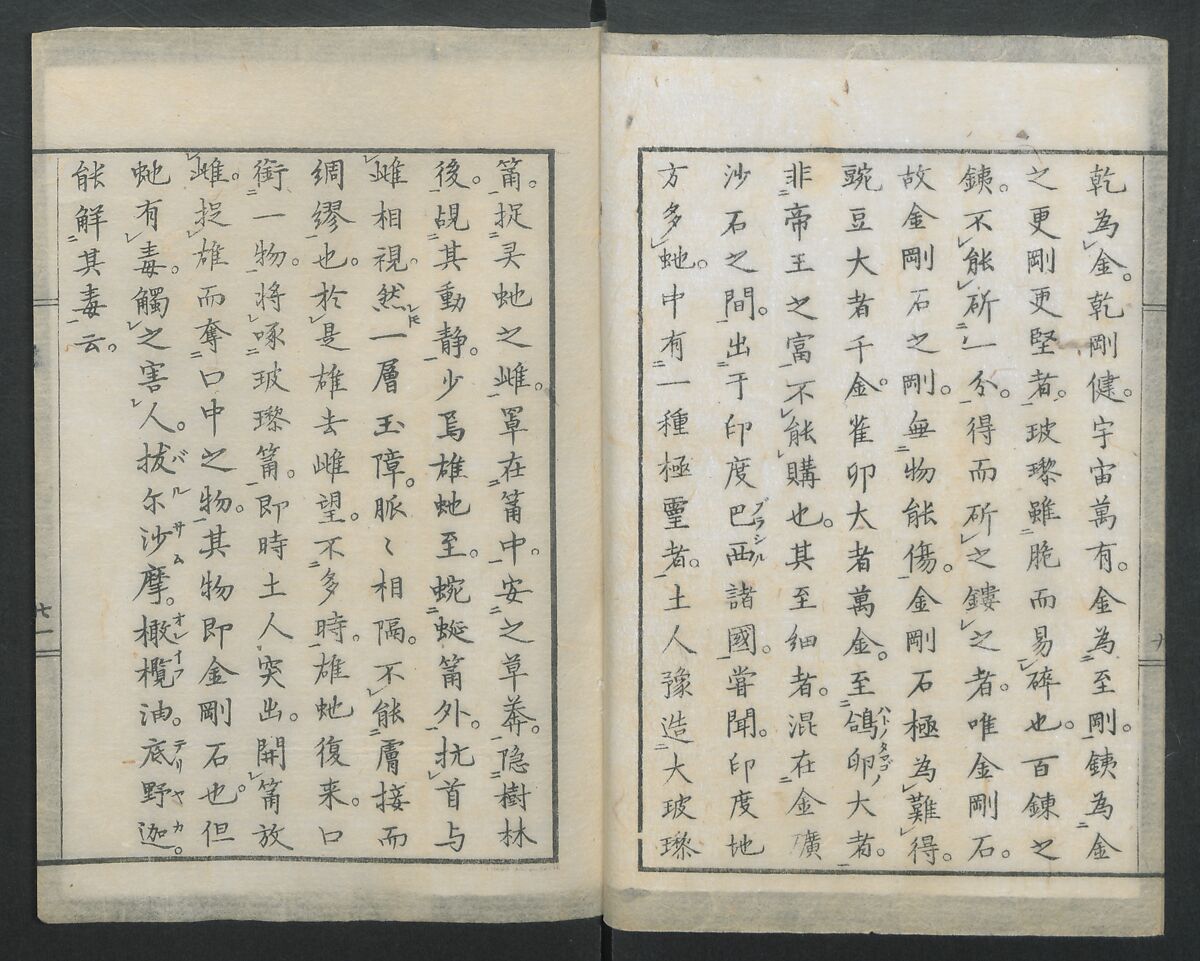 乾為金。乾剛健。宇宙萬有。金為至剛。銕為金
之更剛更堅者。玻瓈雖脆而易碎也。百錬之
銕。不能斫一分。得而斫之鏤之者。唯金剛石。
故金剛石之剛。無物能傷。金剛石極為難得。
豌豆大者千金。雀卵大者萬金。至鴿卵大者。
非帝王之富不能購也。其至细者。混在金礦
沙石之間。出于印度巴西諸國。甞聞。印度地
方多虵。中有一種極靈者。土人豫造大玻瓈
筩。捉灵虵之雌。罩在筩中。安之草莽。隐樹林
後。覘其動静。少焉雄虵至。蜿蜒筩外。抗首与
雌相視。然一層玉障。脈〻相隔。不能膚接而
綢繆也。於是雄去雌望。不多時。雄虵復来。口
銜一物。将啄玻瓈筩。即時土人突出。開筩放
雌。捉雄而奪口中之物。其物即金剛石也。但
虵有毒。觸之害人。拔尓沙摩。橄欖油。底野迦。
能解其毒云。